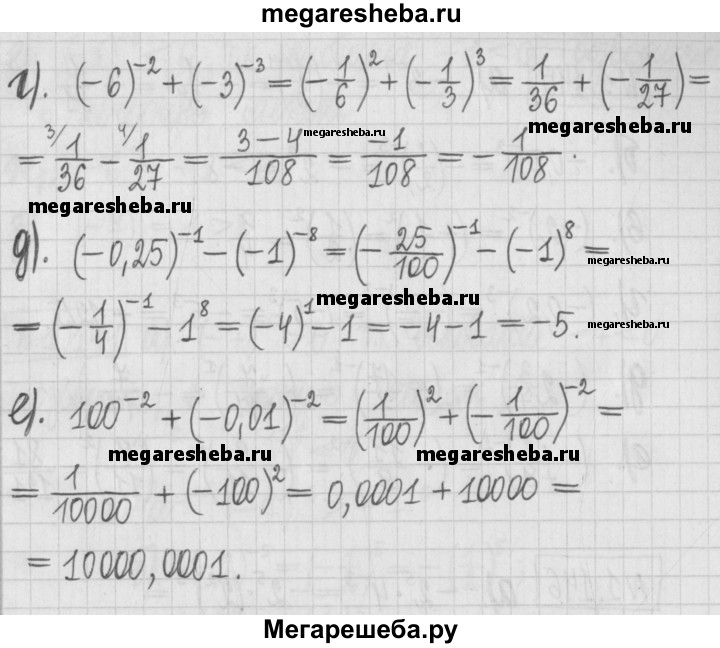 megaresheba.ru
г). (−6)⁻² + (−3)⁻³ = (−1/6)² + (−1/3)³ = 1/36 + (−1/27) =
megaresheba.ru megaresheba.ru
= ³⁄1/36 − ⁴⁄1/27 = (3−4)/108 = −1/108 = −1/108.
megaresheba.ru
д). (−0,25)⁻¹ − (−1)⁻⁸ = (−25/100)⁻¹ − (−1)⁸ =
megaresheba.ru
megaresheba.ru
= (−1/4)⁻¹ − 1⁸ = (−4)¹ − 1 = −4 − 1 = −5.
megaresheba.ru
е). 100⁻² + (−0,01)⁻² = (1/100)² + (−1/100)⁻² =
megaresheba.ru megaresheba.ru
= 1/10000 + (−100)² = 0,0001 + 10000 =
= 10000,0001.
megaresheba.ru
Мегарешеба.ру